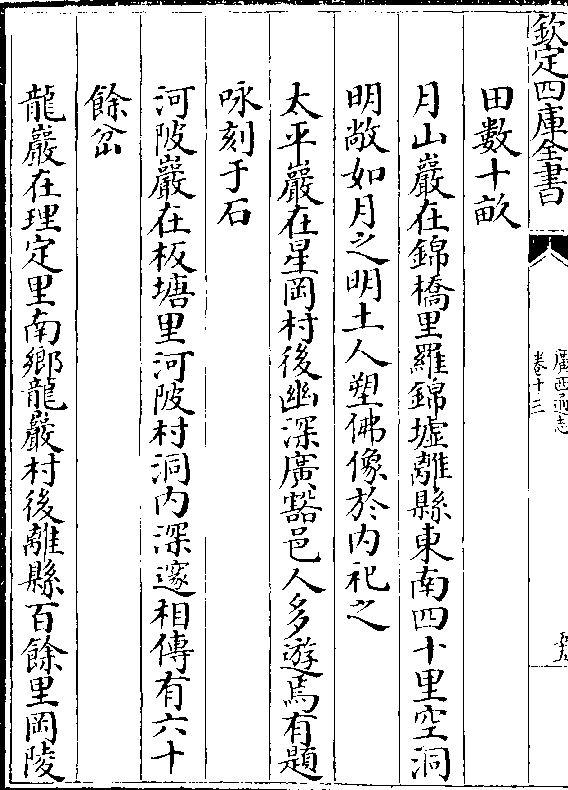 欽定四庫全書
廣西通志
卷十三
田數十畝
月山巖在錦橋里羅錦墟離縣東南四十里空洞
明敞如月之明土人塑佛像於内祀之
太平巖在星岡村後幽深廣豁邑人多遊焉有題
咏刻于石
河陂巖在板塘里河陂村洞内深邃相傳有六十
餘岔
龍巖在理定里南鄉龍巖村後離縣百餘里岡陵